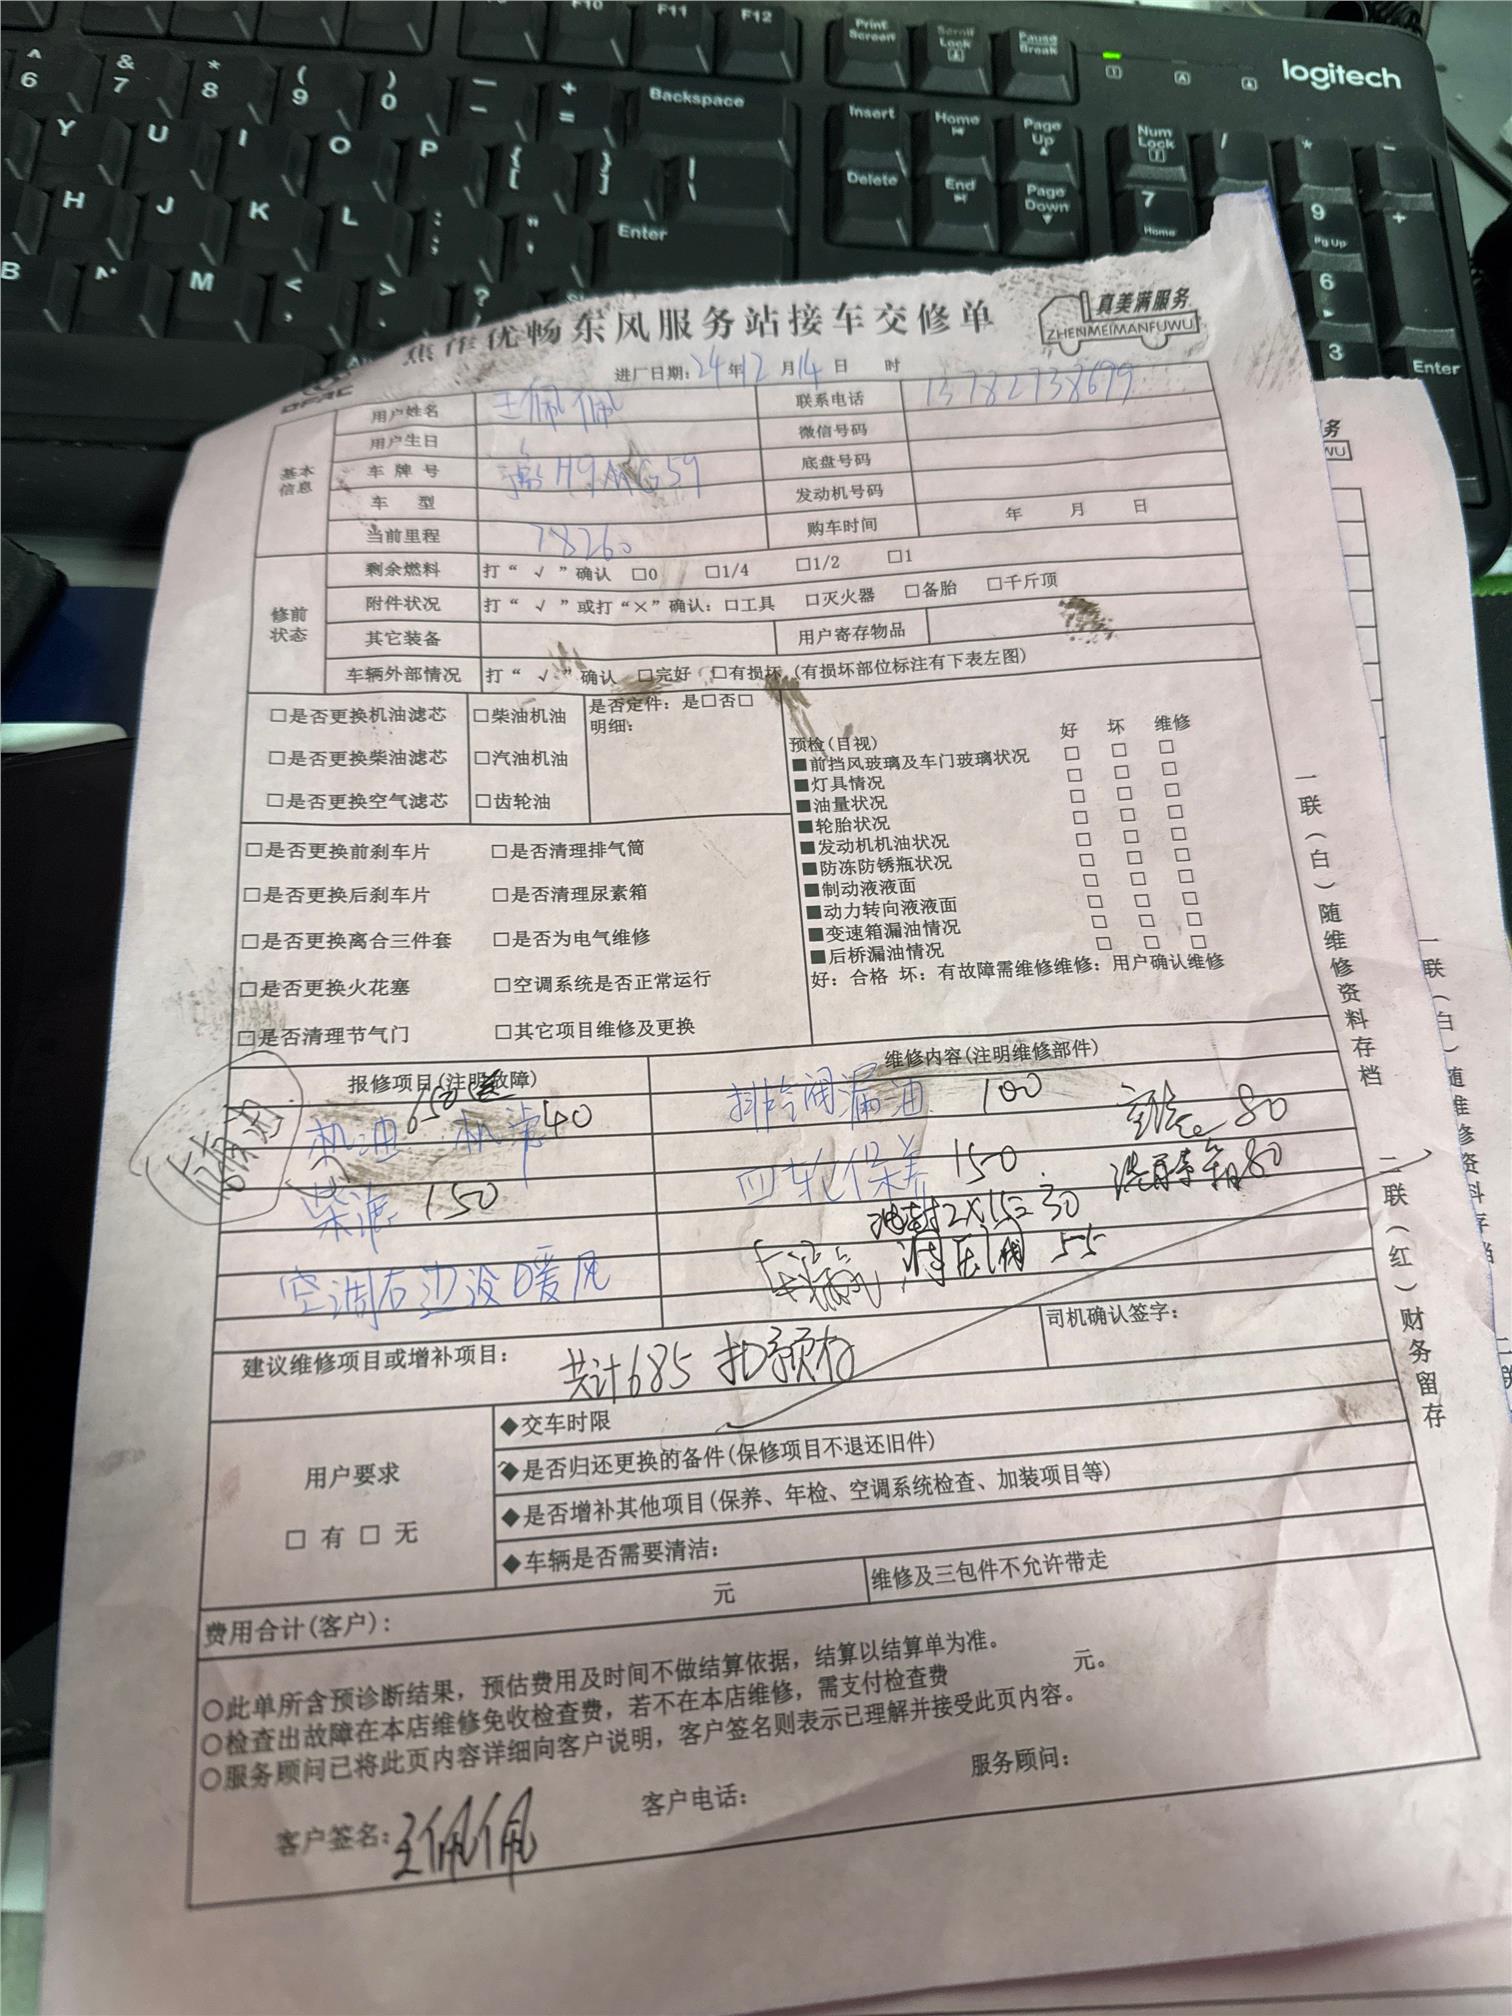 F10 F11 F12 Print Screen Scroll Lock Pause Break
logitech
^ 6 & 7 * 8 ( 9 ) 0 — - + = Backspace Insert Home Page Up Num Lock / * -
Y U I O P { [ } ] | \ Delete End Page Down 7 Home 9 Pg Up +
H J K L : ; " ' Enter 6
B N M < , > . ? 3 Enter
焦作优畅东风服务站接车交修单
真美满服务
ZHENMEIMANFUWU
进厂日期: 24年12月14日 时
基本信息
用户姓名 王佩佩 联系电话 13782738699
用户生日 微信号码
车牌号 豫H9MG59 底盘号码
车 型 发动机号码
当前里程 78260 购车时间 年 月 日
修前状态
剩余燃料 打“√”确认 □0 □1/4 □1/2 □1
附件状况 打“√”或打“×”确认: □工具 □灭火器 □备胎 □千斤顶
其它装备 用户寄存物品
车辆外部情况 打“√”确认 □完好 □有损坏 (有损坏部位标注有下表左图)
□是否更换机油滤芯 □柴油机油 是否定件: 是□否□
明细:
□是否更换柴油滤芯 □汽油机油
□是否更换空气滤芯 □齿轮油
预检(目视) 好 坏 维修
■前挡风玻璃及车门玻璃状况 □ □ □
■灯具情况 □ □ □
■油量状况 □ □ □
■轮胎状况 □ □ □
■发动机机油状况 □ □ □
■防冻防锈瓶状况 □ □ □
■制动液液面 □ □ □
■动力转向液液面 □ □ □
■变速箱漏油情况 □ □ □
■后桥漏油情况 □ □ □
好: 合格 坏: 有故障需维修维修: 用户确认维修
□是否更换前刹车片 □是否清理排气筒
□是否更换后刹车片 □是否清理尿素箱
□是否更换离合三件套 □是否为电气维修
□是否更换火花塞 □空调系统是否正常运行
□是否清理节气门 □其它项目维修及更换
报修项目(注明故障) 维修内容(注明维修部件)
机油 650 送 机滤 40 漏油 100 80
柴滤 150 四轮保养 150 洗尿素箱 80
油封2×15=30
空调右边没暖风 55
建议维修项目或增补项目: 共计685 扣预存 司机确认签字:
用户要求
□ 有 □ 无
◆交车时限
◆是否归还更换的备件(保修项目不退还旧件)
◆是否增补其他项目(保养、年检、空调系统检查、加装项目等)
◆车辆是否需要清洁:
费用合计(客户): 元 维修及三包件不允许带走
○此单所含预诊断结果, 预估费用及时间不做结算依据, 结算以结算单为准。
○检查出故障在本店维修免收检查费, 若不在本店维修, 需支付检查费 元。
○服务顾问已将此页内容详细向客户说明, 客户签名则表示已理解并接受此页内容。
客户签名: 王佩佩 客户电话: 服务顾问:
一联(白)随维修资料存档 二联(红)财务留存